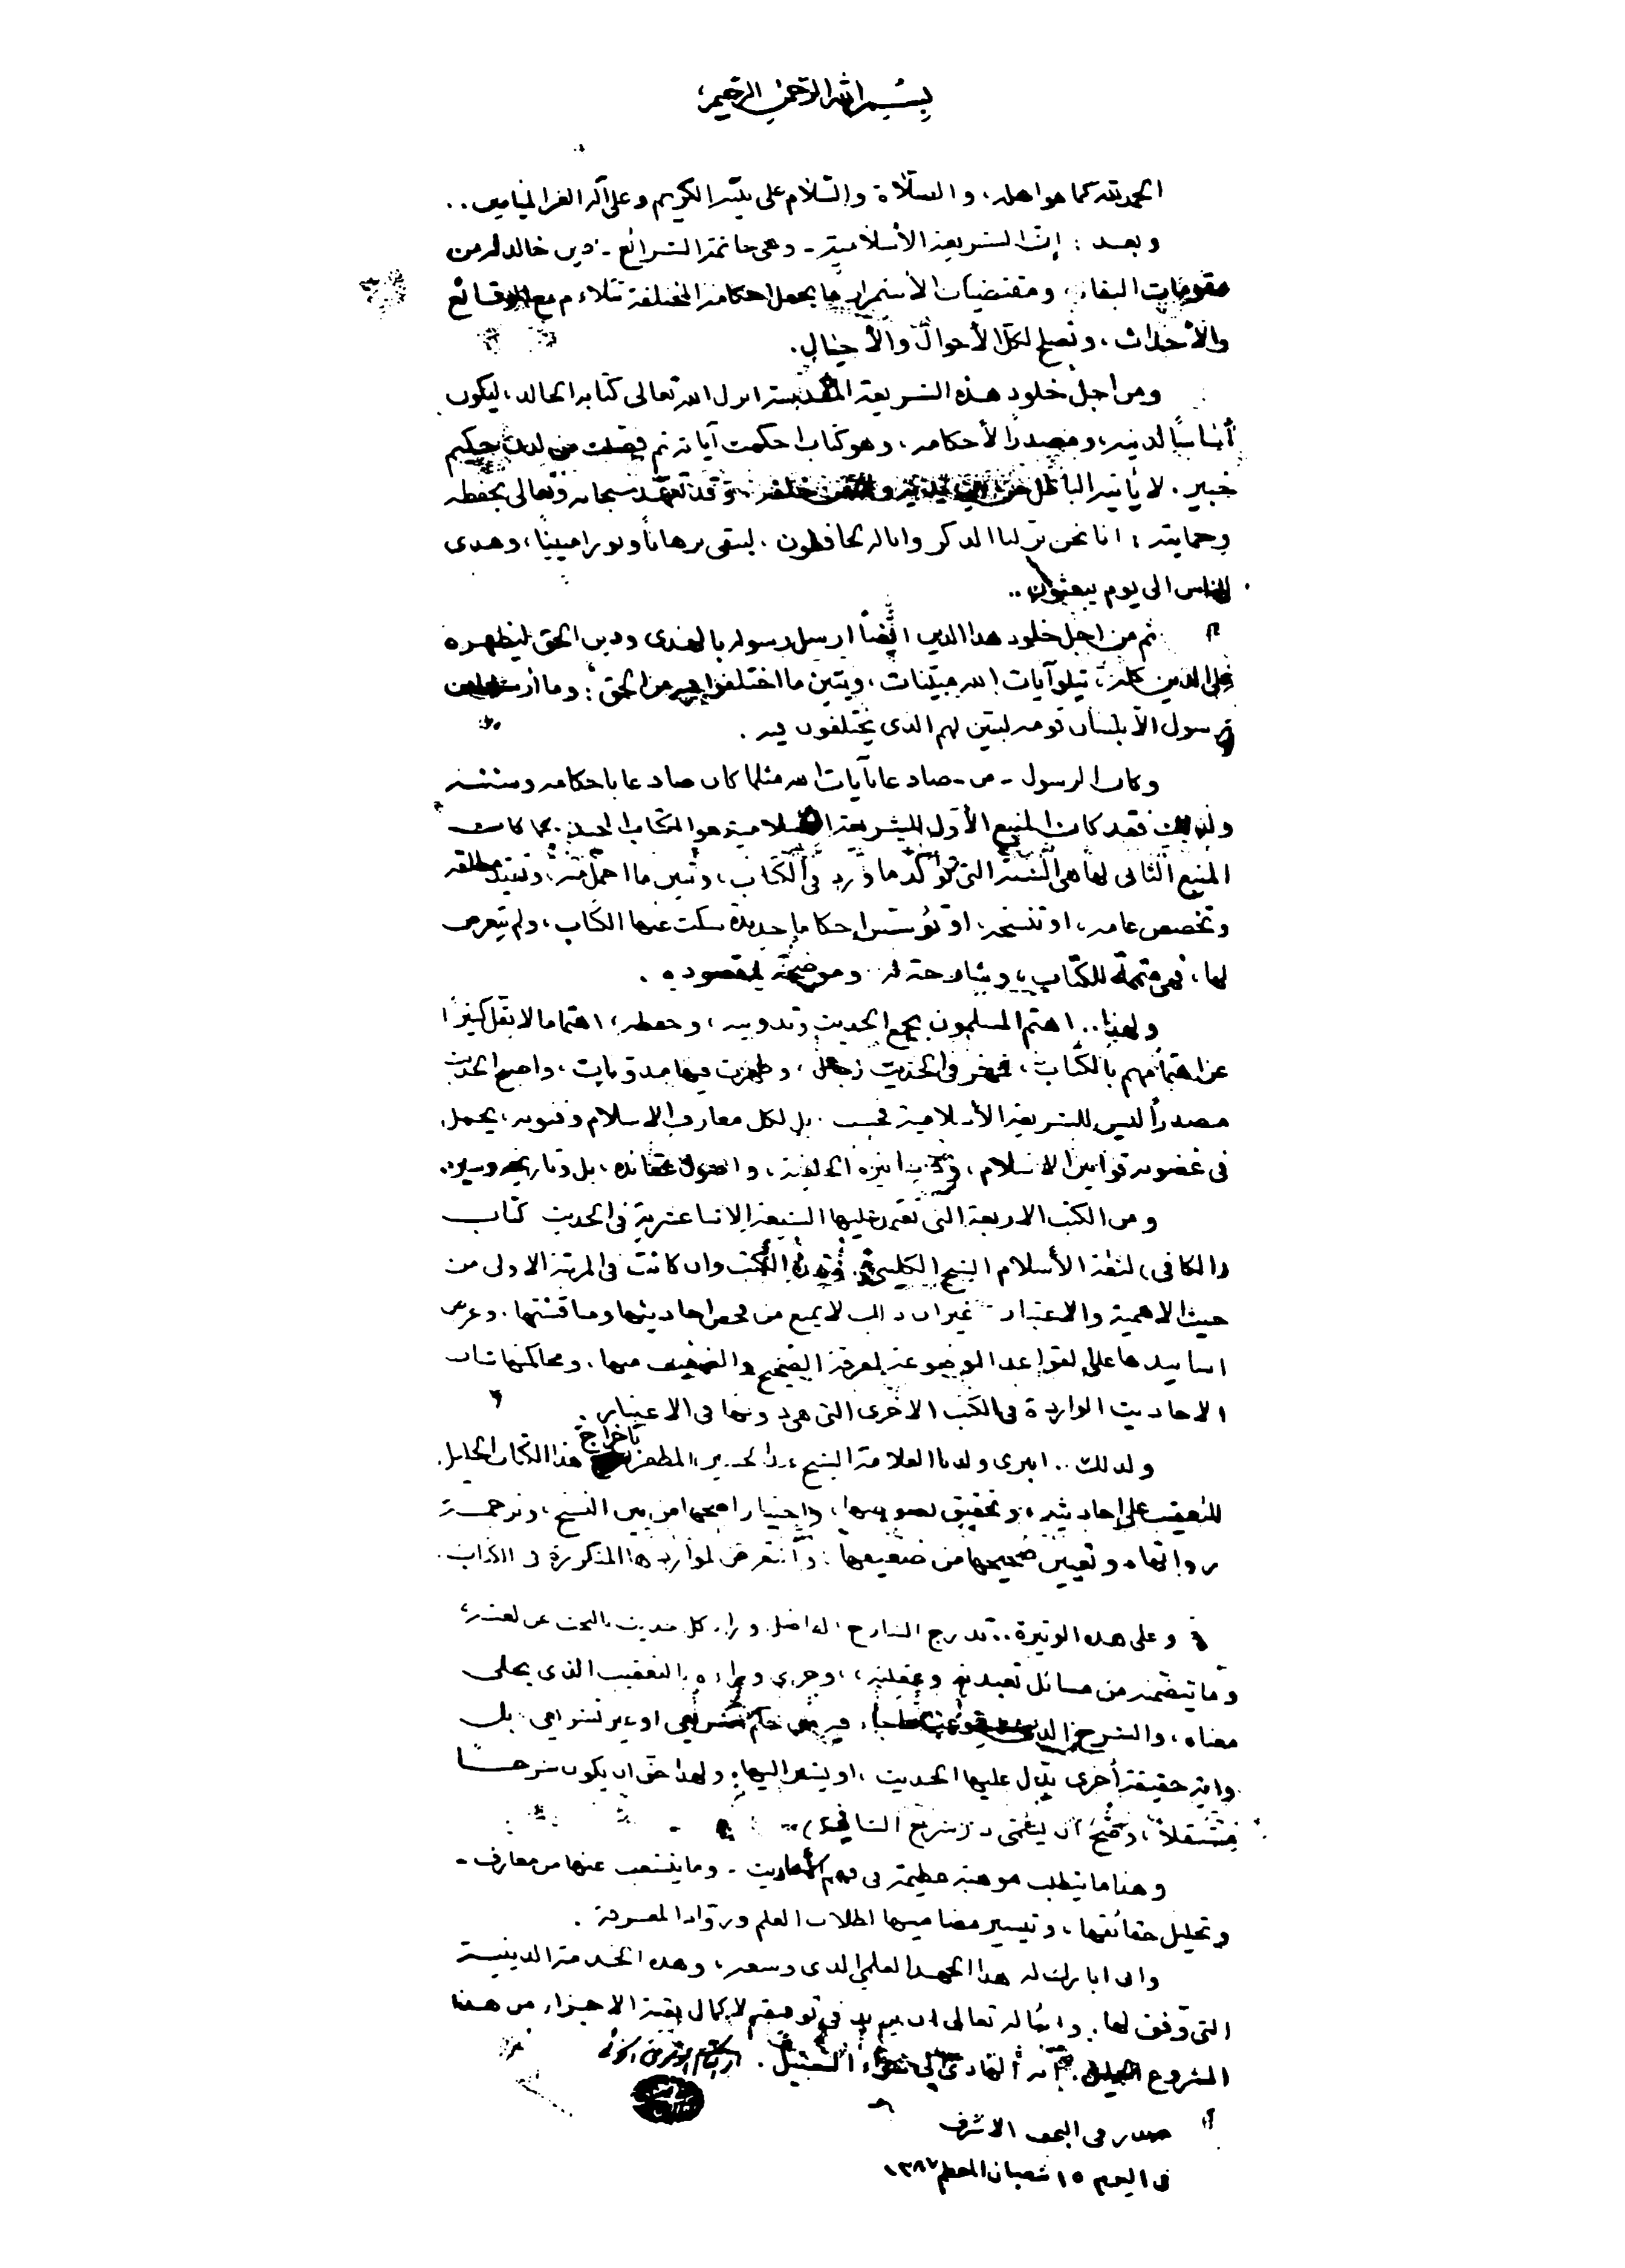 بسم الله الرحمن الرحيم
الحمد لله كما هو اهله، والصلاة والسلام على نبيه الكريم وعلى آله الغر الميامين..
وبعد : إن الشريعة الأسلامية - وهي خاتمة الشرائع - دين خالد له من
مقومات البقاء، ومقتضيات الأستمرار ما يجعل احكامه المختلفة تتلاءم مع الوقائع
والأحداث، وتصلح لكل الأحوال والأجيال.
ومن اجل خلود هذه الشريعة المقدسة انزل الله تعالى كتابه الخالد، ليكون
أساساً لدينه، ومصدراً لأحكامه، وهو كتاب احكمت آياته ثم فصلت من لدن حكيم
خبير. لا يأتيه الباطل من بين يديه ولا من خلفه. وقد تعهد سبحانه وتعالى بحفظه
وحمايته : انا نحن نزلنا الذكر وانا له لحافظون. ليبقى برهاناً ونورا مبينا، وهدى
للناس الى يوم يبعثون..
ثم من اجل خلود هذا الدين ايضاً ارسل رسوله بالهدى ودين الحق ليظهره
على الدين كله، يتلو آيات الله مبينات، ويبين ما اختلفوا فيه من الحق : وما أرسلنا من
رسول الا بلسان قومه ليبين لهم الذى يختلفون فيه.
وكان الرسول - ص - صادعا بآيات الله مثلما كان صادعا باحكامه وسننه
ولذلك فقد كان المنبع الأول للشريعة الاسلامية هو الكتاب المجيد. كما كانت
المنبع الثانى لها هى السنة التى تؤكد ما ورد فى الكتاب، وتبين ما اجمل منه، وتقيد مطلقه
وتخصص عامه، او تنسخه، او تؤسس احكاما جديدة سكت عنها الكتاب، ولم يتعرض
لها، فهى متممة للكتاب، وشارحة له وموضحة لمقصوده.
ولهذا.. اهتم المسلمون بجمع الحديث وتدوينه، وحفظه، اهتماما لا يقل كثيرا
عن اهتمامهم بالكتاب، فمهر فى الحديث رجال، وظهرت فيها مدونات، واصبح الحديث
مصدراً ليس للشريعة الأسلامية فحسب. بل لكل معارف الاسلام وفنونه، يحمل
فى غضونه قوانين الاسلام، الخلقية، واصول عقائده، بل وتاريخه وسيره.
ومن الكتب الاربعة التى تعتمد عليها الشيعة الاثنا عشرية فى الحديث كتاب
(الكافى) لثقة الأسلام الشيخ الكلينى. وهذه الكتب وان كانت فى المرتبة الاولى من
حيث الاهمية والاعتبار - غير ان ذلك لا يمنع من فحص احاديثها ومناقشتها. وعرض
اسانيدها على القواعد الموضوعة لمعرفة الصحيح والضعيف منها، ومحاكمتها شأن
الاحاديث الواردة فى الكتب الاخرى التى هى دونها فى الاعتبار.
ولذلك.. انبرى ولدنا العلامة الشيخ عبد الحسين المظفر باخراج هذا الكتاب الجليل.
للتعقيب على احاديثه، وتحقيق نصوصها، واختيار اصحها من بين النسخ، وترجمة
رواتها، وتعيين صحيحها من ضعيفها : والتعرض لمواردها المذكورة فى الكتاب.
وعلى هذه الوتيرة.. تدرج الشارح الفاضل وراء كل حديث بالبحث عن لغته،
وما تتضمنه من مسائل تعبدية وعقلية، وجرى وراءه بالتعقيب الذى يجلى
معناه، والشرح الذى حكم شرعى او غير شرعى بل
واية حقيقة أخرى يدل عليها الحديث، او يشير اليها، ولهذا حق ان يكون شرحا
مستقلاً، وصح أن يسمى بـ (شرح الشافى)..
وهنا ما يتطلب موهبة عظيمة فى فهم الأحاديث - وما يتشعب عنها من معارف -
وتحليل حقائقها، وتيسير مضامينها لطلاب العلم ورواد المعرفة.
وانى ابارك له هذا الجهد العلمي الذى وسعه، وهذه الخدمة الدينية
التى وفق لها. واسأله تعالى ان يزيد فى توفيقه لاكمال بقية الاجزاء من هذا
المشروع الجليل. انه الهادى الى سواء السبيل. ابو القاسم الموسوي الخوئي
صدر فى النجف الاشرف
فى اليوم ١٥ شعبان المعظم ١٣٨٧